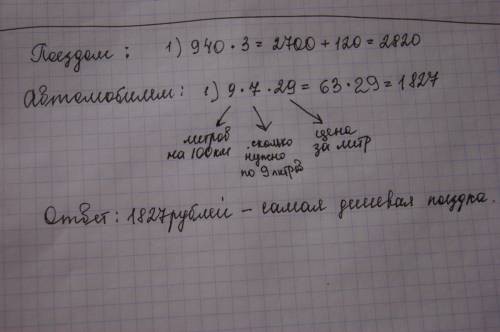 Поездом: 1) 940 · 3 = 2700 + 120 = 2820
Автомобилем: 1) 9 · 7 · 29 = 63 · 29 = 1827
литров на 100 км
сколько нужно по 9 литров
цена за литр
Ответ: 1827 рублей – самая дешевая поездка.